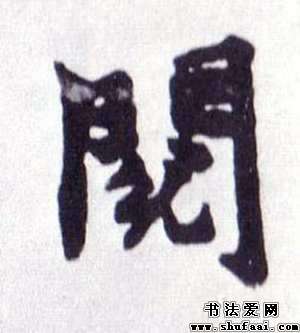 閱
书法爱网
www.shufaai.com